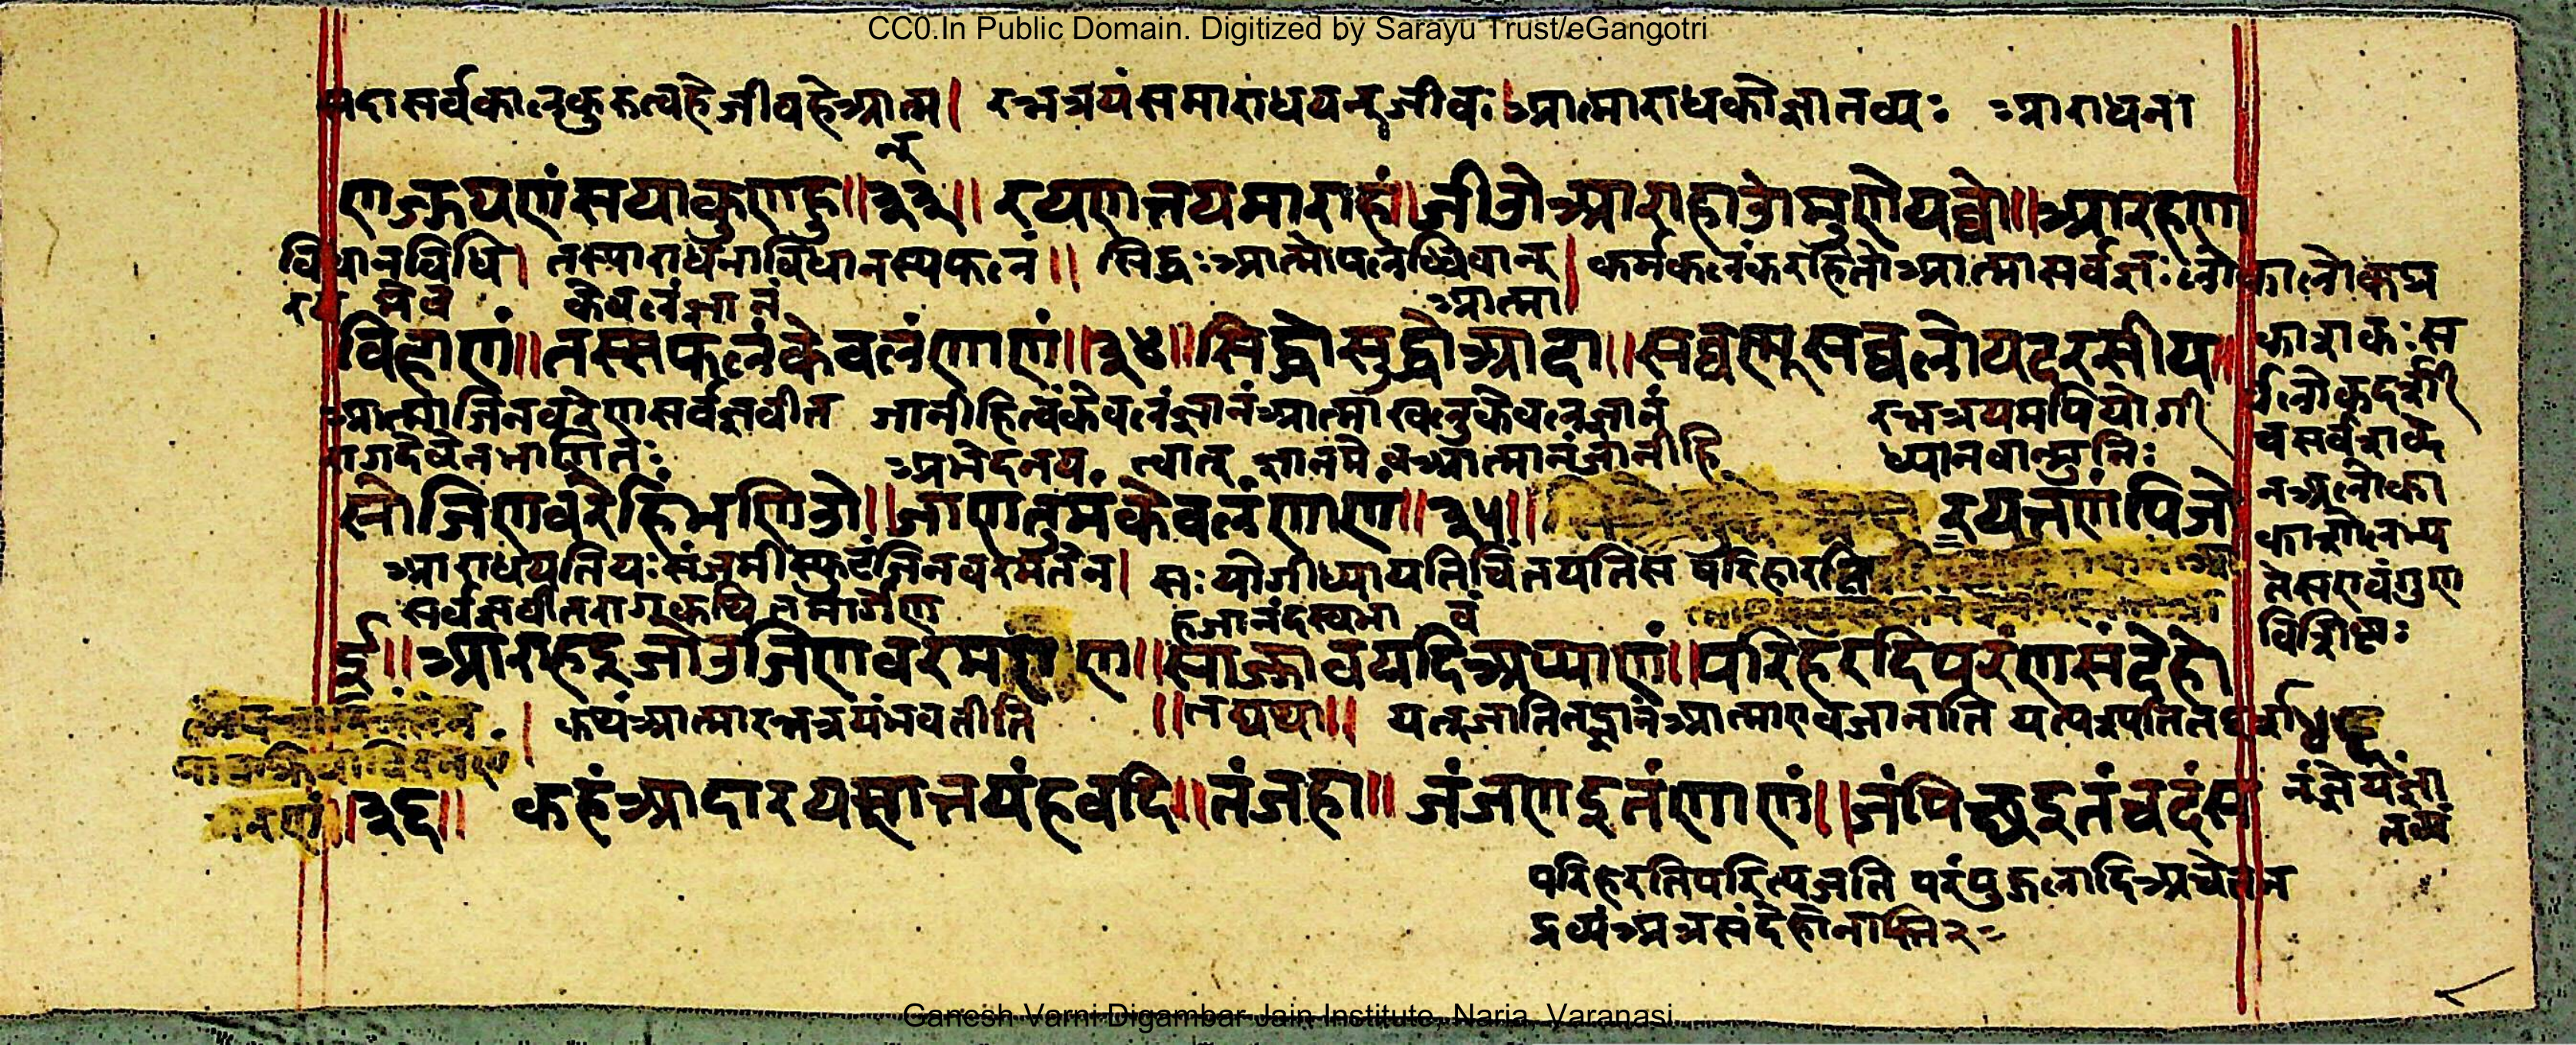 CC0.In Public Domain. Digitized by Sarayu Trust/eGangotri
सदासर्वकालंकुरुत्वहेजीवहेआत्म। रत्नत्रयंसमाराधयन्जीवः।आत्माराधकोज्ञातव्यः आराधना
न्
णज्झयणंसयाकुणह॥३३॥ रयणत्तयमाराहं॥जीवोआराहओमुणेयव्वो॥आराहणा
विधानविधि। तस्याराधनाविधानस्यफलं॥ सिद्धःआत्मोपलब्धिवान्। कर्मकलंकरहितोआत्मासर्वज्ञःलोकालोकप्र
मेव केवलंज्ञानं आत्मा।
विहाणं॥तस्सफलंकेवलंणाणं॥३४॥सिद्धोसुद्धोआदा॥सव्वण्हूसव्वलोयदरसीय॥
काशकःस
आत्माजिनवरेणसर्वज्ञवीत जानीहित्वंकेवलंज्ञानंआत्माखलुकेवलज्ञानं रत्नत्रयमपियोगी
र्वलोकदर्शी
रागदेवेनभाणितः अभेदनय. त्वात् ज्ञानमेवआत्मानंजानीहि ध्यानवान्मुनिः
सोजिणवरेहिंभणिओ॥जाणतुमंकेवलंणाणं॥३५॥ रयत्तणंपिजो
आराधयतियःसंजमीस्फुटंजिनवरमतेन। सःयोगीध्यायतिचिंतयतिस परिहारति
तेसएवंगुण
सर्वज्ञवीतरागकथितमार्गेण हजानंदस्वभा वं
विशिष्टः
ई॥आराहइजोउजिणवरमएण॥सोज्झावयदिअप्पाणं॥परिहरदिपरंणसंदेहो
। कथंआत्मारत्नत्रयंभवतीति ॥तद्यथा॥ यत्जानातितद्ज्ञानंआत्माएवजानाति यत्पश्यतितद्दर्श
॥३६॥ कहंआदारयणत्तयंहवदि॥तंजहा॥ जंजाणइतंणाणं॥जंपिच्छइतंचदंस
नंज्ञेयंज्ञा
तव्यं
परिहरतिपरित्यजति परंपुद्गलादिअचेतन
द्रव्यंअत्रसंदेहोनास्ति२
Ganesh Varni Digambar Jain Institute, Naria, Varanasi